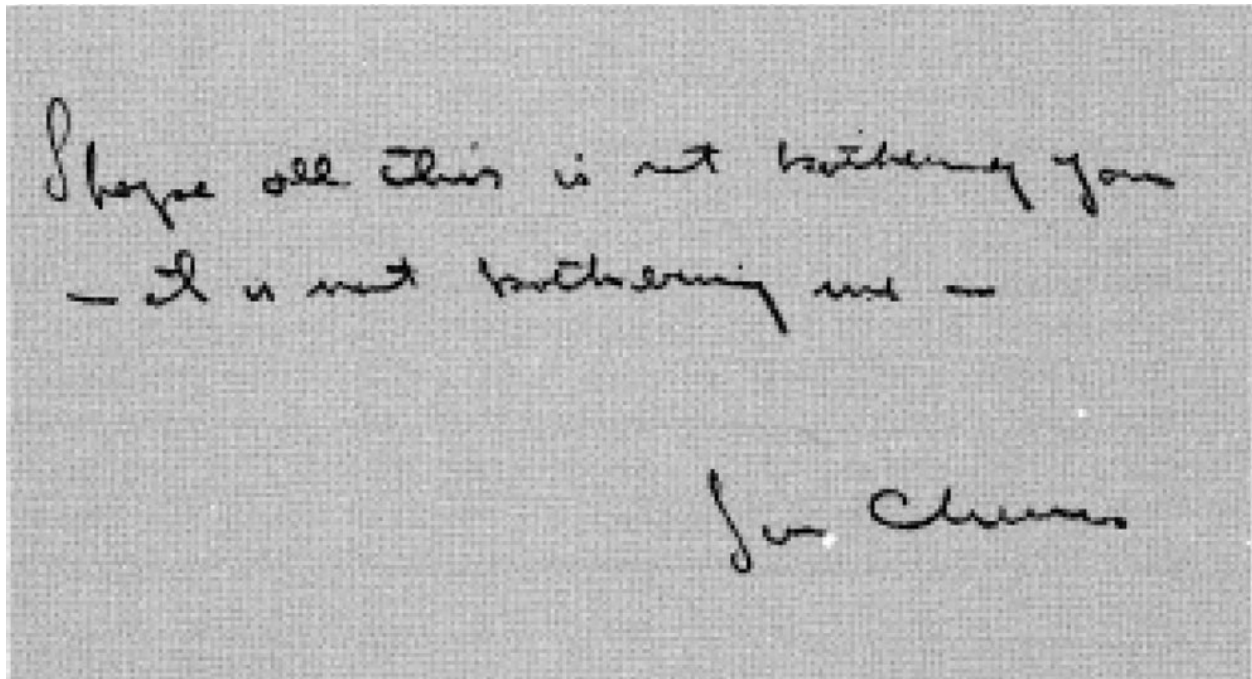 I hope all this is not bothering you
— it is not bothering me —
Jim